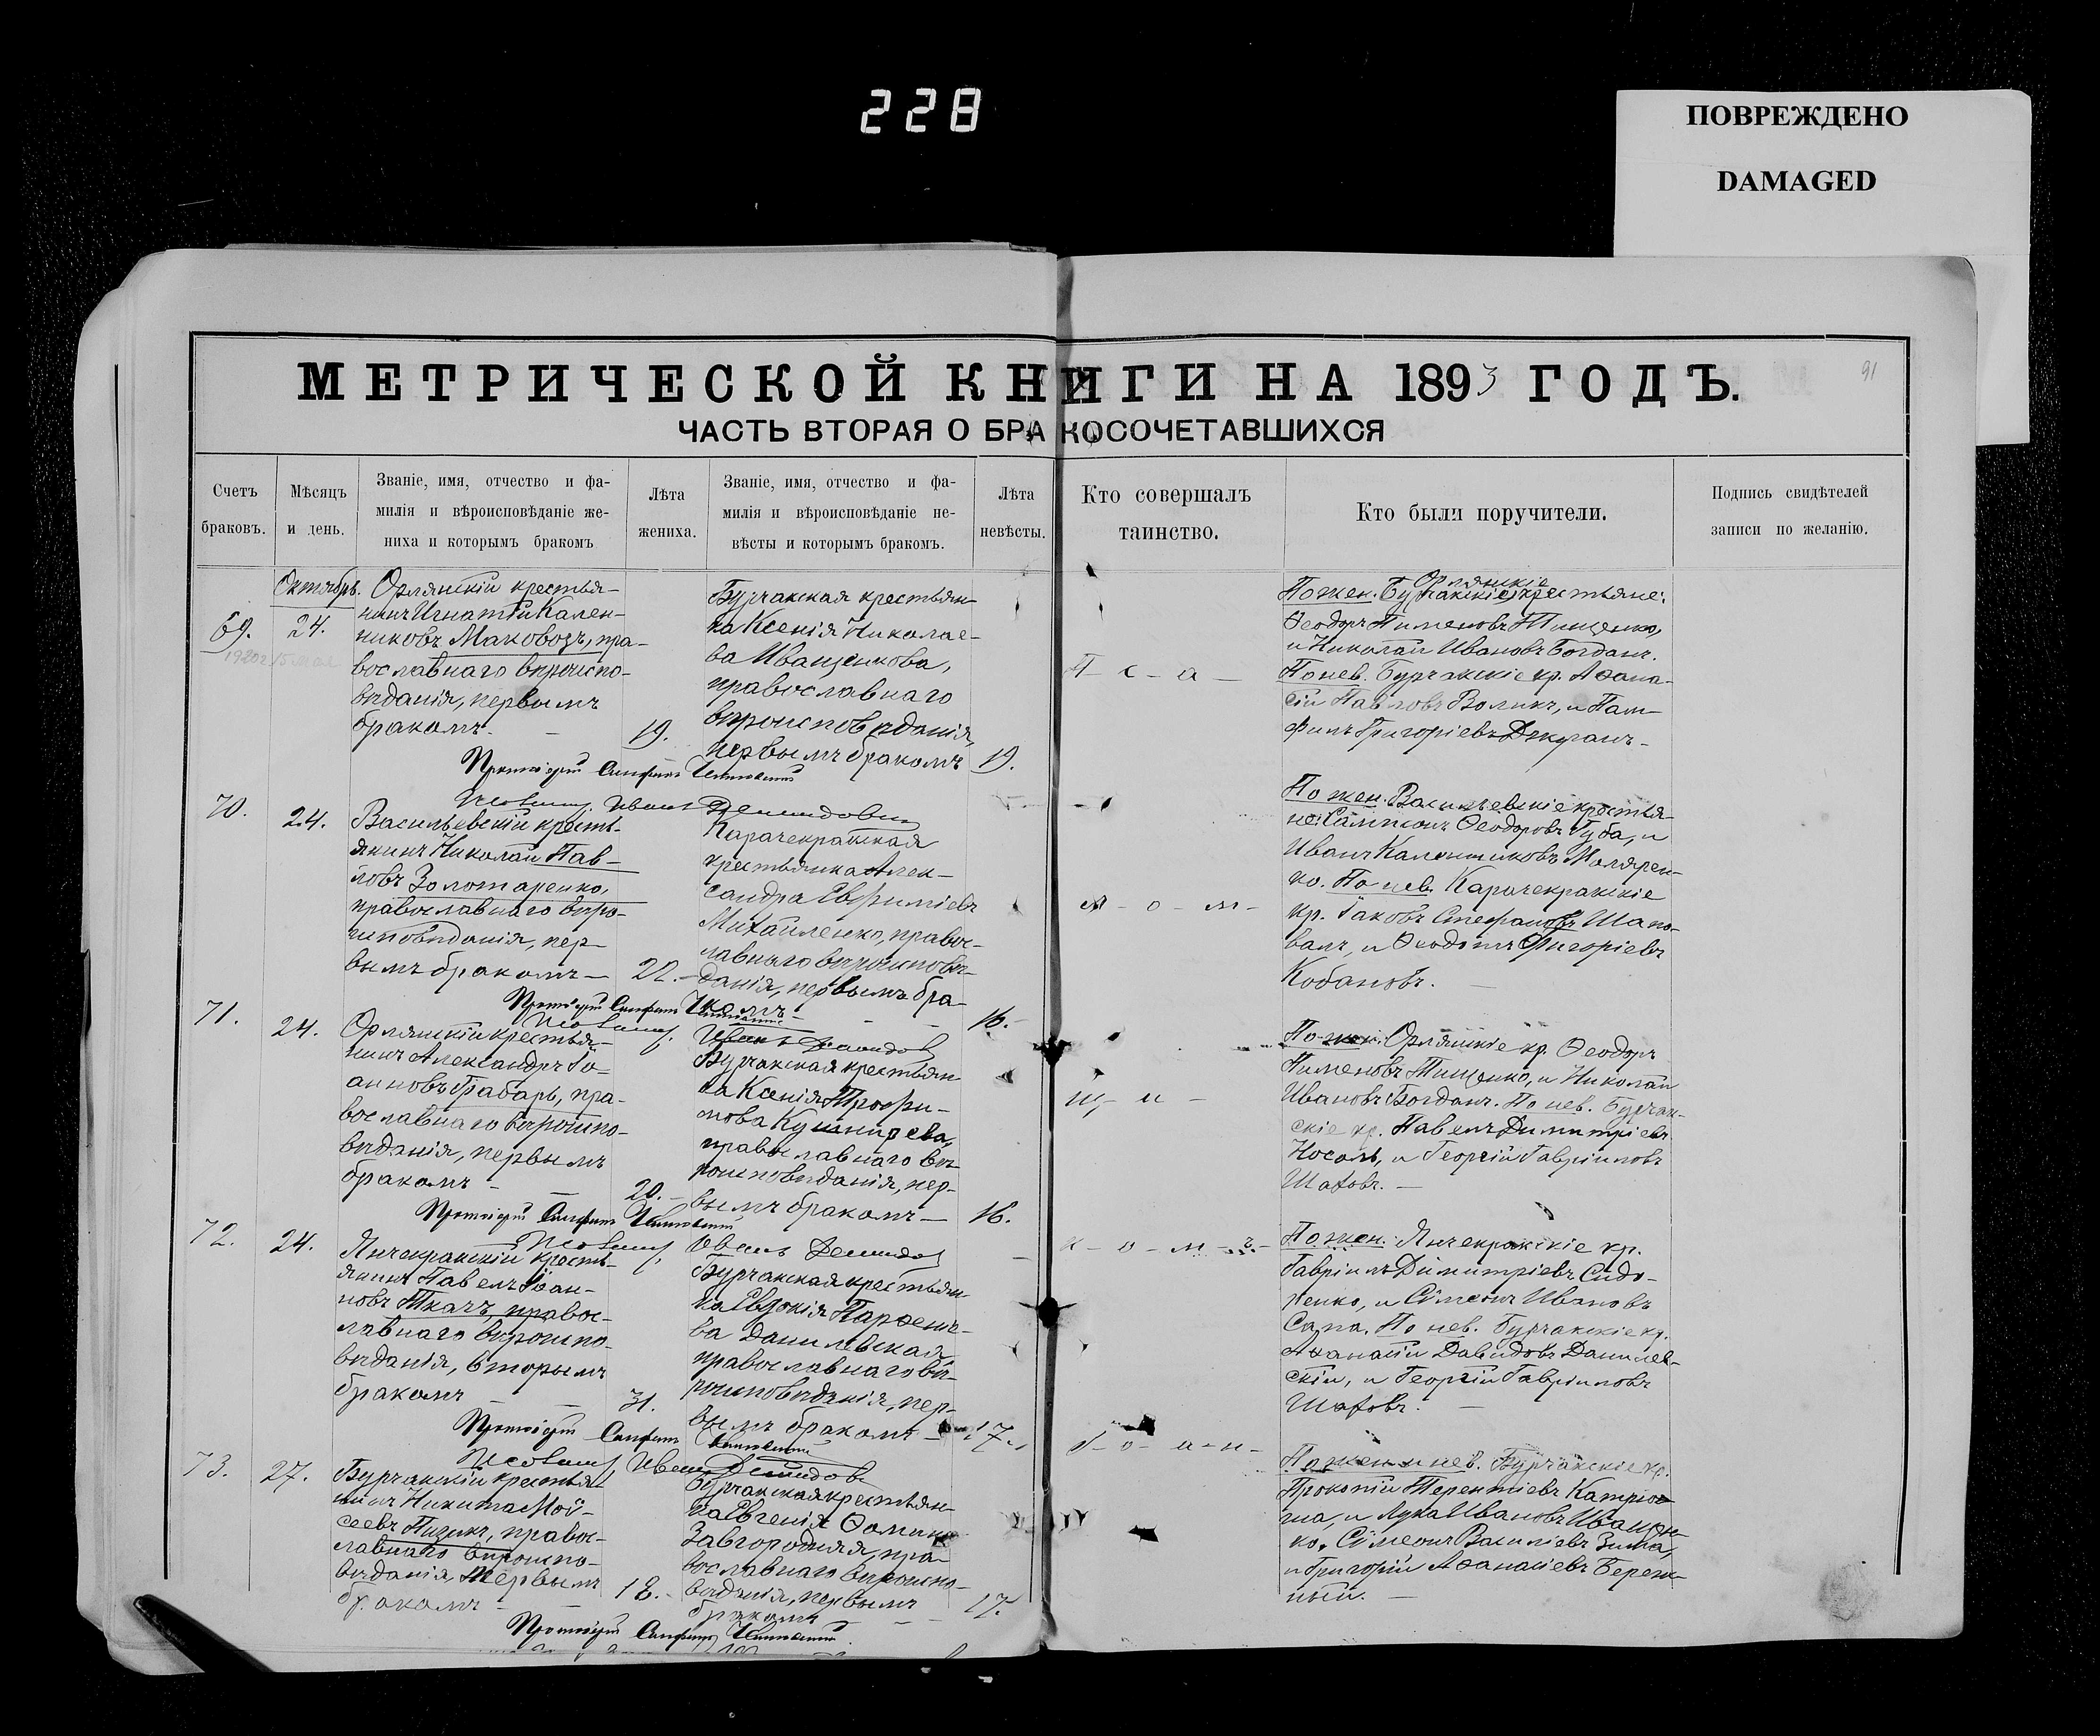 228
ПОВРЕЖДЕНО
DAMAGED
91
МЕТРИЧЕСКОЙ КНИГИ НА 1893 ГОДЪ.
ЧАСТЬ ВТОРАЯ О БРАКОСОЧЕТАВШИХСЯ
Счетъ
браковъ.
Мѣсяцъ
и день.
Званіе, имя, отчество и фа-
милія и вѣроисповѣданіе же-
ниха и которымъ бракомъ
Лѣта
жениха.
Званіе, имя, отчество и фа-
милія и вѣроисповѣданіе не-
вѣсты и которымъ бракомъ.
Лѣта
невѣсты.
Кто совершалъ
таинство.
Кто были поручители.
Подпись свидѣтелей
записи по желанію.
69.
Октябрь.
24.
Орлянскій крестья-
нинъ Игнатій Кален-
никовъ Маковозъ, пра-
вославнаго вѣроиспо-
вѣданія, первымъ
бракомъ.
19.
Бурчакская крестьян-
ка Ксенія Николае-
ва Иващенкова,
православнаго
вѣроисповѣданія,
первымъ бракомъ
19.
П - с - а -
Орлянскіе
По жен. Бурчакскіе крестьяне:
Ѳеодоръ Пименовъ Тищенко,
и Николай Ивановъ Богданъ.
По нев. Бурчакскіе кр. Аѳана-
сій Павловъ Воликъ, и Пам-
филъ Григоріевъ
Протоіерей
70.
24.
Васильевскій кресть-
янинъ Николай Пав-
ловъ Золотаренко,
православнаго вѣро-
исповѣданія, пер-
вымъ бракомъ —
22.
Карачекракская
крестьянка Алек-
сандра Евфиміев
Михайленко, правос-
лавнаго вѣроисповѣ-
данія, первымъ бра-
комъ
16.
- о - м -
По жен. Васильевскіе крестья-
не: Сампсонъ Ѳеодоровъ Губа, и
Иванъ Каленниковъ Моляен-
ко. По нев. Карачекракскіе
кр. Іаковъ Стефановъ Шапо-
валъ, и Григоріевъ
Кобановъ.
Протоіерей
Псаломщ. Иванъ Демидов
71.
24.
Орлянскій крестья-
нинъ Александръ Іо-
анновъ Грабарь, пра-
вославнаго вѣроиспо-
вѣданія, первымъ
бракомъ
20.
Бурчакская крестьян
ка Ксенія Трофи-
мова Кушнирева,
православнаго вѣ-
роисповѣданія, пер-
вымъ бракомъ —
16.
щ - и -
По жен. Орлянскіе кр. Ѳеодоръ
Пименовъ Тищенко, и Николай
Ивановъ Богданъ. По нев. Бурчак-
скіе кр. Павелъ Димитріевъ
Носаль, и Георгій Гавріиловъ
Шаховъ.
Протоіерей
Псаломщ. Иванъ Демидов
72.
24.
Янчекракскій кресть-
янинъ Павелъ Іоан-
новъ Ткачъ, правос-
лавнаго вѣроиспо-
вѣданія, вторымъ
бракомъ
31.
Бурчакская крестьян-
ка Евдокія Парѳень-
ва Данилевская
православнаго вѣ-
роисповѣданія, пер-
вымъ бракомъ —
17.
к - о - м - ъ -
По жен. Янчекракскіе кр.
Гавріилъ Димитріевъ Сидо-
ренко, и Сѵмеонъ Ивановъ
Сапа. По нев. Бурчакскіе кр.
Аѳанасій Давидовъ Данилев-
скій, и Георгій Гавріиловъ
Шаховъ.
Протоіерей
Псаломщ. Иванъ Демидов
73.
27.
Бурчакскій крестья-
нинъ Никита Мой-
сеевъ Пизикъ, правос-
лавнаго вѣроиспо-
вѣданія, первымъ
бракомъ
18.
Бурчакская крестьян-
ка Евгенія Ѳомина
Завгородняя, пра-
вославнаго вѣроиспо-
вѣданія, первымъ
бракомъ
17.
По жен. и нев. Бурчакскіе кр.
Прокопій Терентіевъ Катрю-
ша, и Лука Ивановъ Иванен-
ко. Сѵмеонъ Василіевъ Зима,
и Григорій Аѳанасіевъ Береж-
ный.
Протоіерей